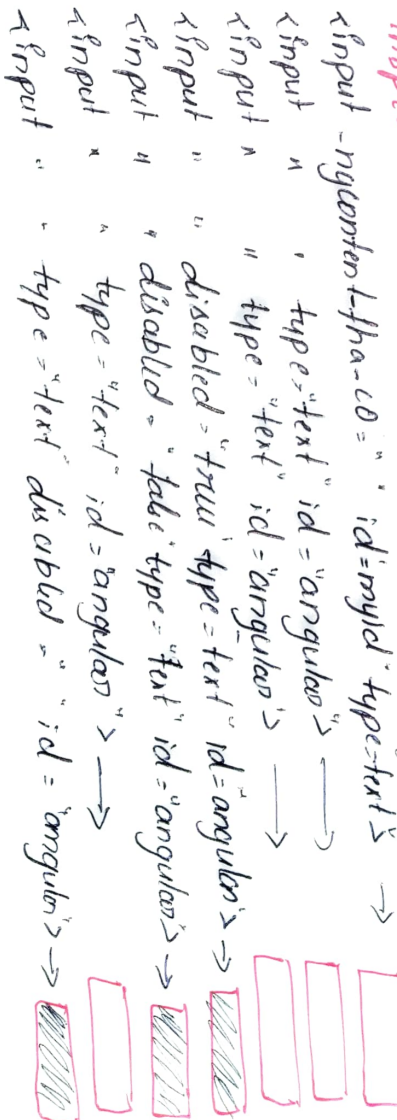 <input -ngcontent-fha-c0=" " id=myid" type=text> →
<input " " type="text" id="angular"> →
<input " " type="text" id="angular"> →
<input " " disabled="true" type=text" id="angular"> →
<input " " disabled = "false" type="text" id="angular"> →
<input " " type="text" id="angular"> →
<input " " type="text" disabled = " " id="angular"> →